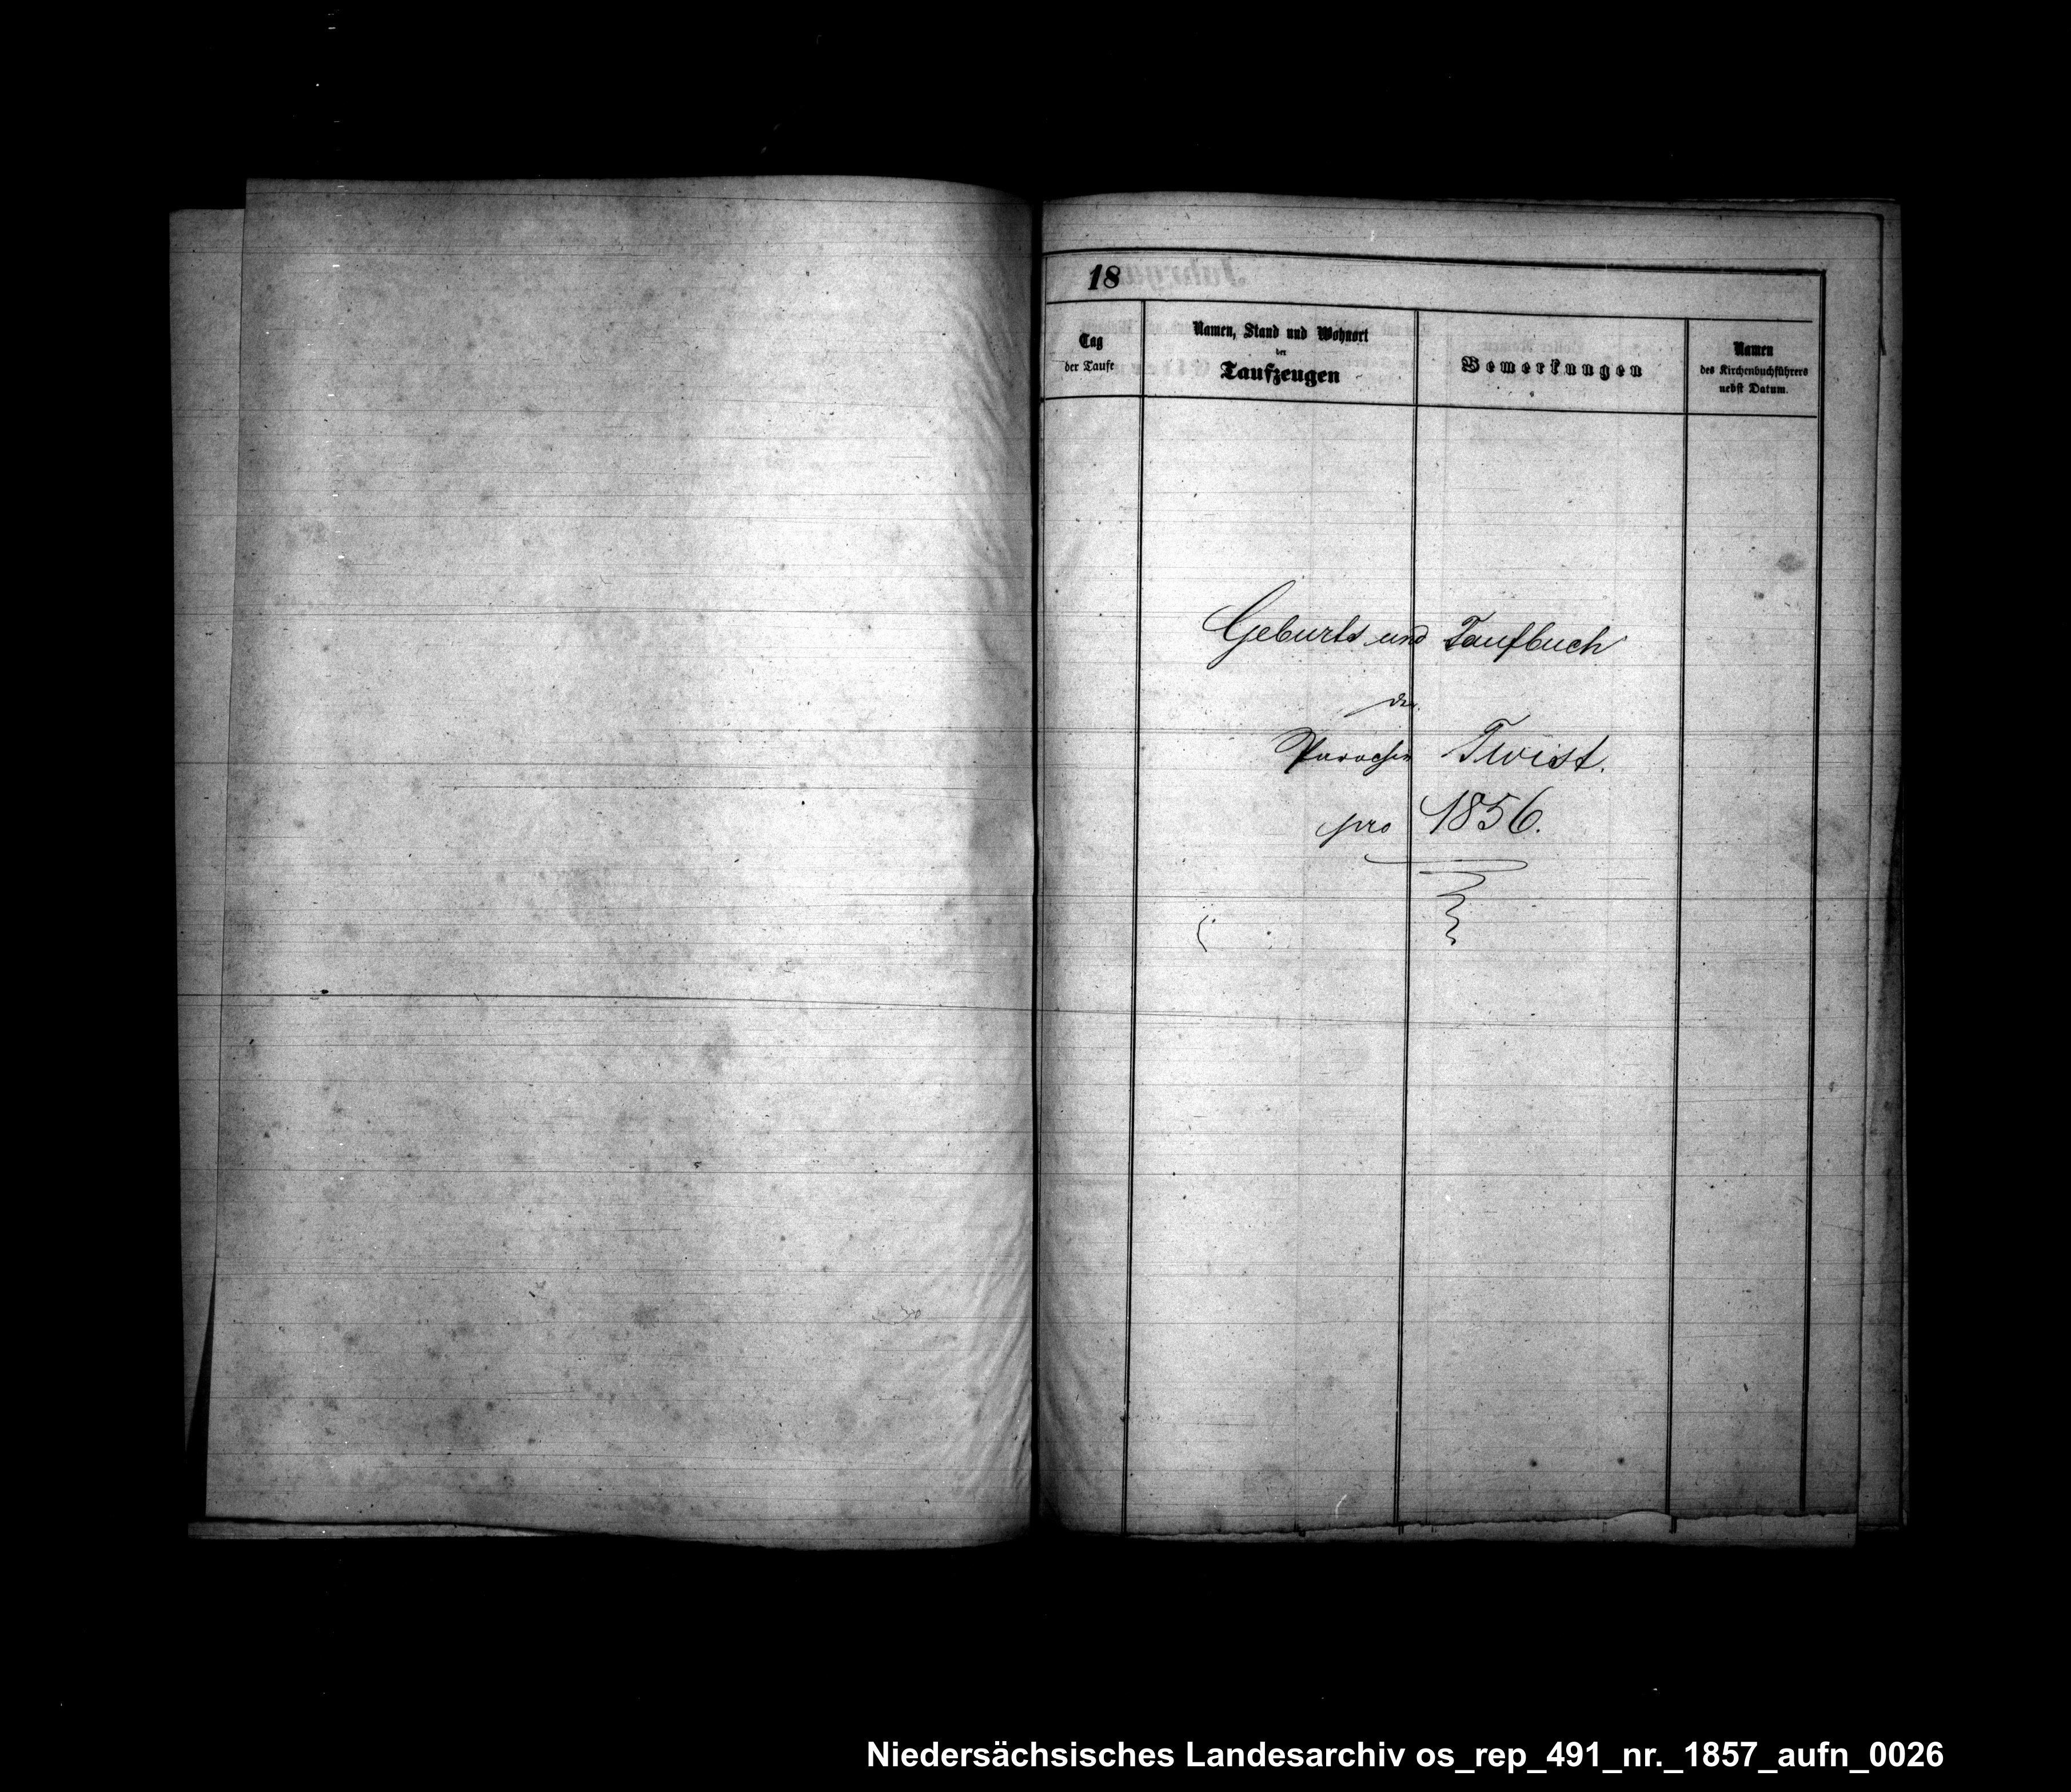 18
Tag
der Taufe
Namen, Stand und Wohnort
der
Taufzeugen
Bemerkungen
Namen
des Kirchenbuchführers
nebst Datum.
Geburts und Taufbuch
der
Parochie Twist.
pro 1856.
Niedersächsisches Landesarchiv os_rep_491_nr._1857_aufn_0026